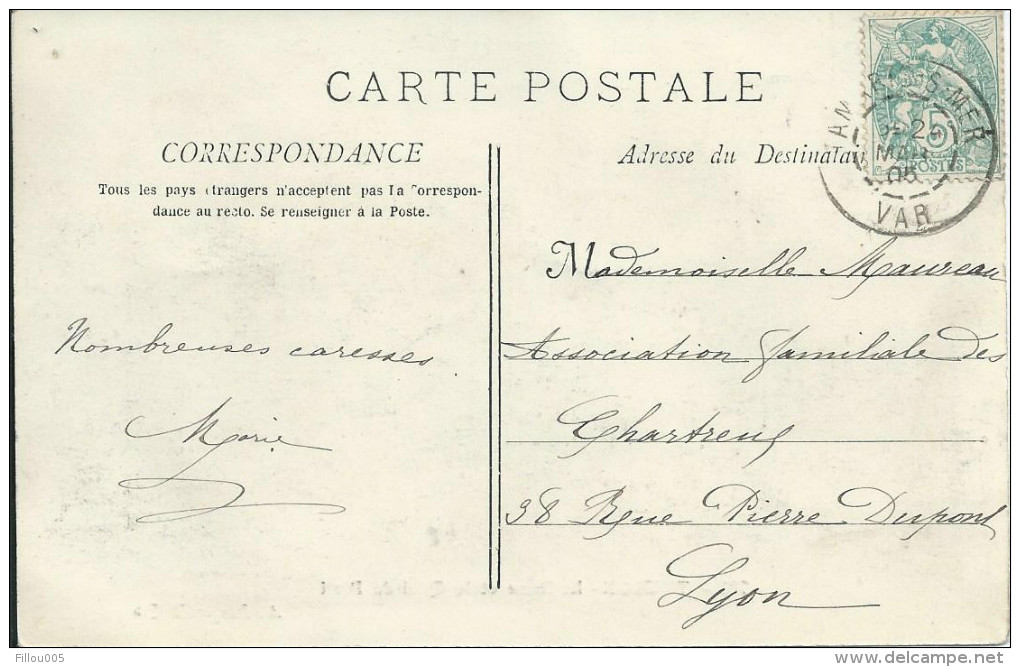 CARTE POSTALE
CORRESPONDANCE
Tous les pays étrangers n'acceptent pas la Correspon-
dance au recto. Se renseigner à la Poste.
Nombreuses caresses
Marie
Adresse du Destinatai
5
POSTES
S-MER
VAR
Mademoiselle Maureau
Association familiale des
Chartreux
38 Rue Pierre Dupont
Lyon
Fillou005
delcampe.net